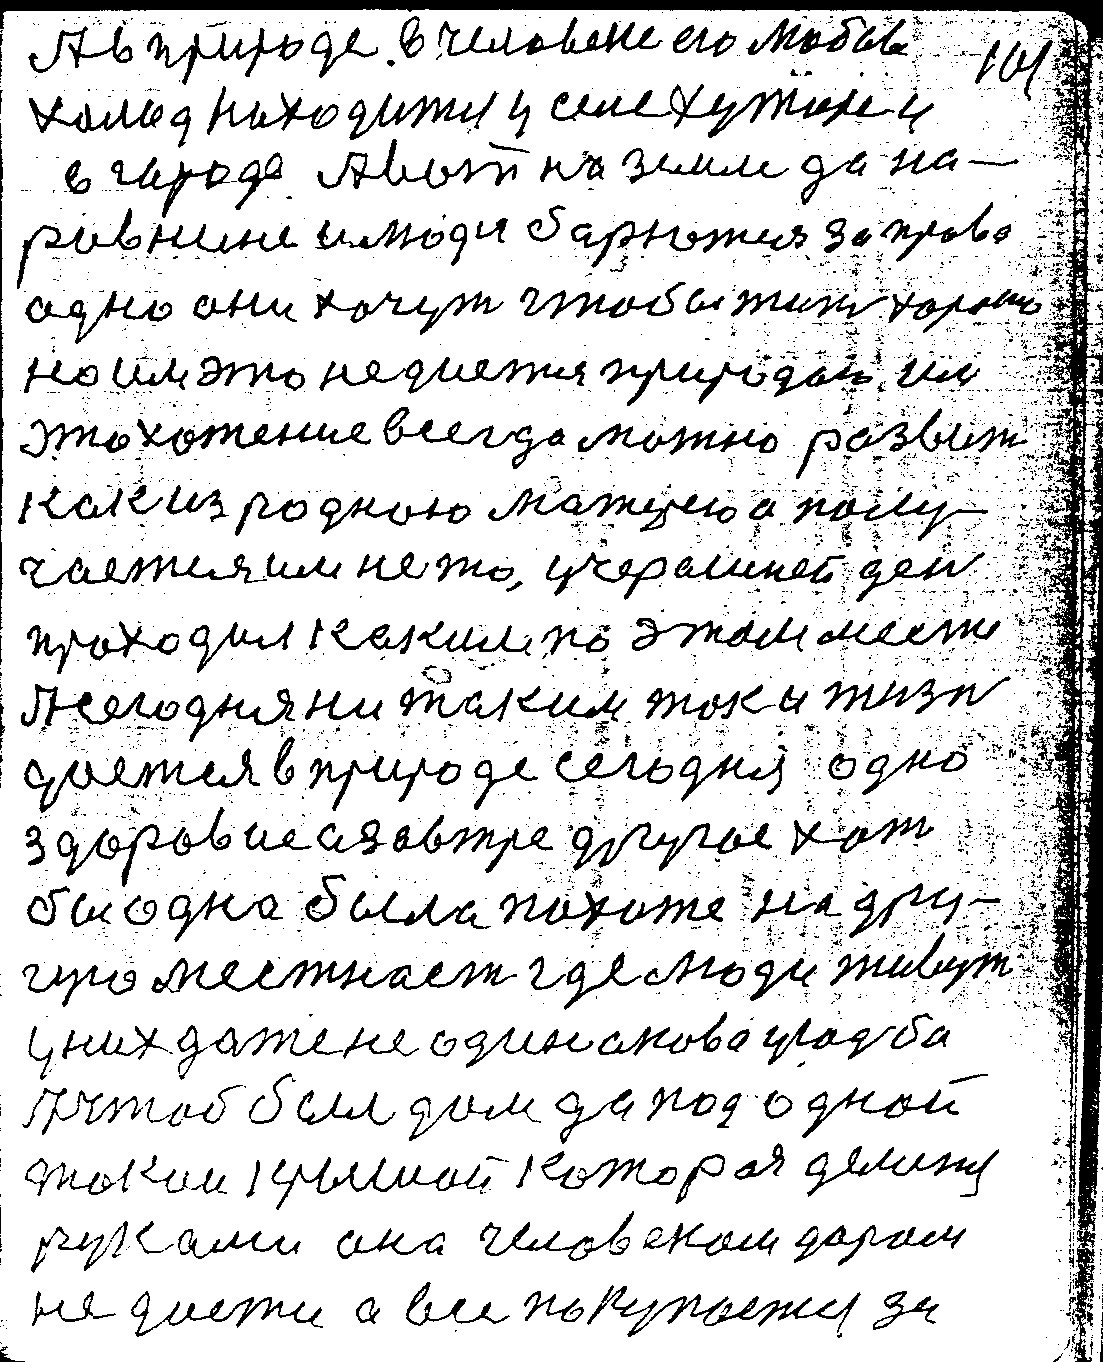 А в природе в человене его любов 101
холод находится у селе хуторе и
в городе А вот на земле да на-
ровнине и люди борются за право
одно они хочут чтобы жить хорошо
но им это не дается природою им
это хотение всегда можно развит
как из родною матерею а полу-
чается им не то, учерашней ден
проходил каким по этом месте
А сегодня ни таким так и жизн
дается в природе сегодня одно
здоровие а завтре другое хот
бы одна была похоже на дру-
гую местнаст где люди живут
у них даже не одинакова усадба
А чтоб был дом да под одной
такои крышой которая делится
руками она человеком даром
не дается а все покупается за